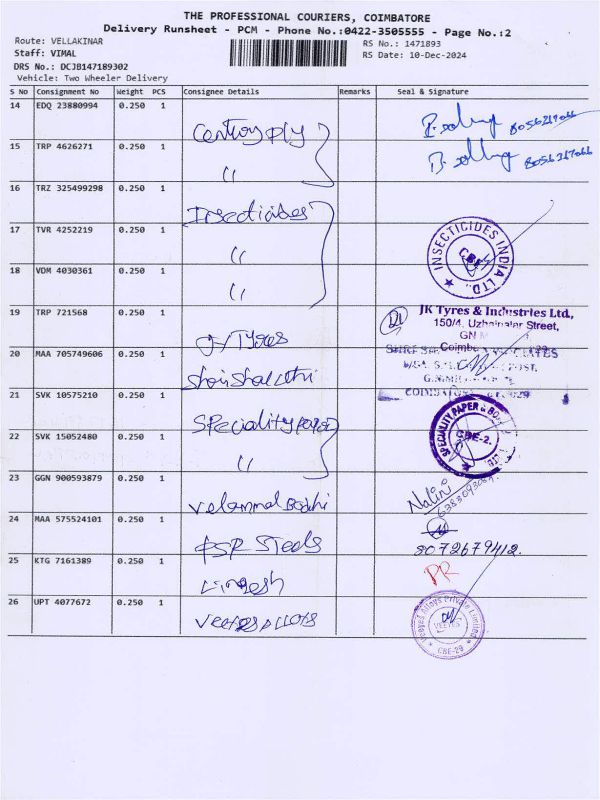 THE PROFESSIONAL COURIERS, COIMBATORE
Delivery Runsheet - PCM - Phone No.:0422-3505555 - Page No.:2
Route: VELLAKINAR
RS No.: 1471893
Staff: VIMAL
RS Date: 10-Dec-2024
DRS No.: DCJB147189302
Vehicle: Two Wheeler Delivery
S No Consignment No Weight PCS Consignee Details Remarks Seal & Signature
14 EDQ 23880994 0.250 1
Centroy ply
15 TRP 4626271 0.250 1
"
8056317066
16 TRZ 325499298 0.250 1
Insecticides
17 TVR 4252219 0.250 1
"
INSECTICIDES INDIA LTD.,
CBE
18 VDM 4030361 0.250 1
"
19 TRP 721568 0.250 1
JK Tyres
JK Tyres & Industries Ltd.,
150/4, Uzhaipalar Street,
GN
Coimbatore
20 MAA 705749606 0.250 1
POST,
COIMBATORE
21 SVK 10575210 0.250 1
Speciality paper
SPECIALITY PAPER & BOARD
CBE-2.
22 SVK 15052480 0.250 1
"
23 GGN 900593879 0.250 1
Velammal Bodhi
Nalini
24 MAA 575524101 0.250 1
PSR Steels
8072679412.
25 KTG 7161389 0.250 1
Lingesh
PR
26 UPT 4077672 0.250 1
Veetes Alloys
Veeyes Alloys Private Limited
VEEYES
CBE-29